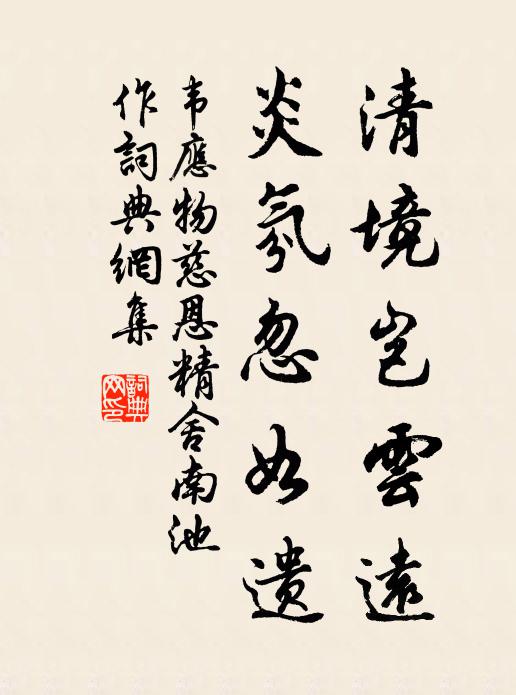 清境岂雲遠
炎氛忽如遗
韦應物慈恩精舍南池
作詞典網集
詞典
网印